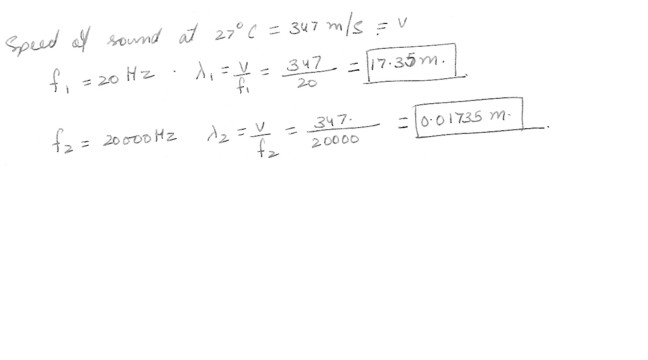 Speed of sound at 27°C = 347 m/s = v
f₁ = 20 Hz . λ₁ = v/f₁ = 347/20 = 17.35 m.
f₂ = 20000 Hz λ₂ = v/f₂ = 347./20000 = 0.01735 m.